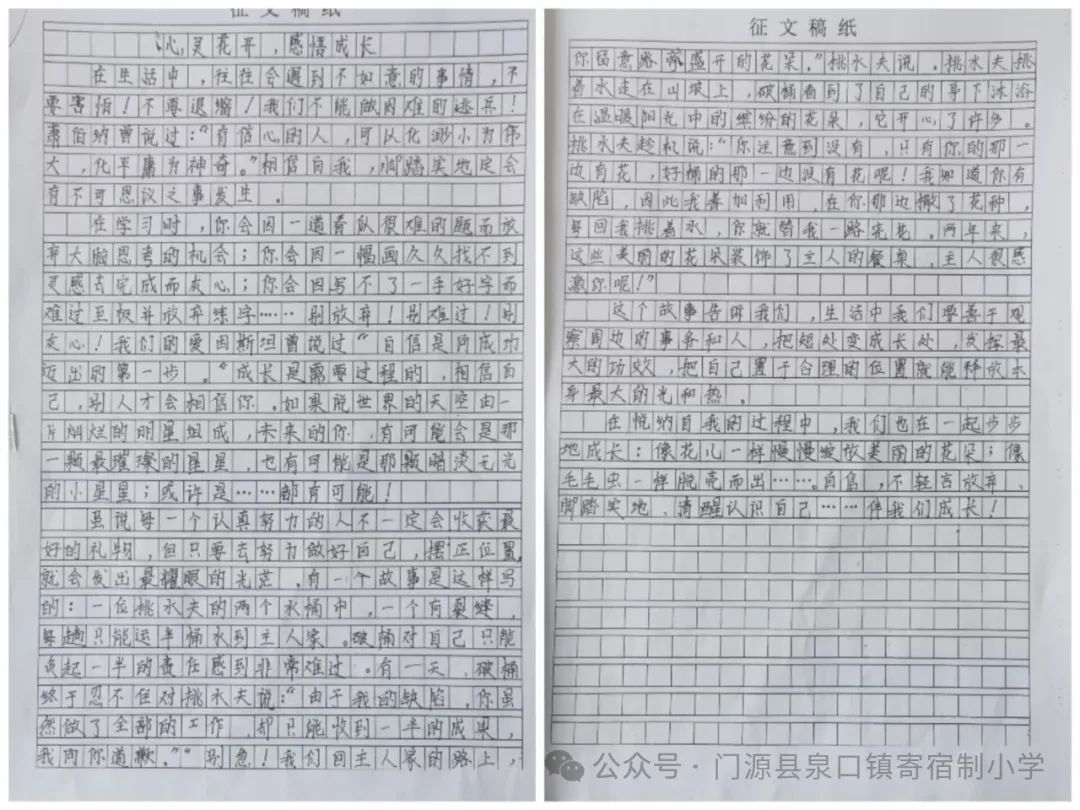 征文稿纸
心灵花开，感悟成长
在生活中，往往会遇到不如意的事情，不
要害怕！不要退缩！我们不能做困难的逃兵！
萧伯纳曾说过：“有信心的人，可以化渺小为伟
大，化平庸为神奇。”相信自我，脚踏实地定会
有不可思议之事发生。
在学习时，你会因一道看似很难的题而放
弃大脑思考的机会；你会因一幅画久久找不到
灵感去完成而灰心；你会因写不了一手好字而
难过至极并放弃练字……别放弃！别难过！别
灰心！我们的爱因斯坦曾说过“自信是向成功
迈出的第一步。”成长是需要过程的，相信自
己，别人才会相信你。如果说世界的天空由一
片灿烂的明星组成，未来的你，有可能会是那
一颗最璀璨的星星，也有可能是那颗暗淡无光
的小星星；或许是……都有可能！
虽说每一个认真努力的人不一定会收获最
好的礼物，但只要去努力做好自己，摆正位置，
就会发出最耀眼的光芒。有一个故事是这样写
的：一位挑水夫的两个水桶中，一个有裂缝，
每趟只能运半桶水到主人家。破桶对自己只能
负起一半的责任感到非常难过。有一天，破桶
终于忍不住对挑水夫说：“由于我的缺陷，你虽
然做了全部的工作，却只能收到一半的成果，
我向你道歉。”“别急！我们回主人家的路上，
征文稿纸
你留意路旁盛开的花朵。”挑水夫说。挑水夫挑
着水走在山坡上，破桶看到了自己的事下沐浴
在温暖阳光中的缤纷的花朵，它开心了许多。
挑水夫趁机说：“你注意到没有，只有你的那一
边有花，好桶的那一边没有花呢！我知道你有
缺陷，因此我善加利用，在你那边撒了花种，
每回我挑着水，你就替我一路浇花。两年来，
这些美丽的花朵装饰了主人的餐桌，主人很感
激你呢！”
这个故事告诉我们，生活中我们要善于观
察周边的事务和人，把短处变成长处，发挥最
大的功效，把自己置于合理的位置就能释放本
身最大的光和热。
在悦纳自我的过程中，我们也在一起步步
地成长：像花儿一样慢慢绽放美丽的花朵；像
毛毛虫一样脱壳而出……。自信、不轻言放弃、
脚踏实地、清醒认识自己……伴我们成长！
公众号·门源县泉口镇寄宿制小学